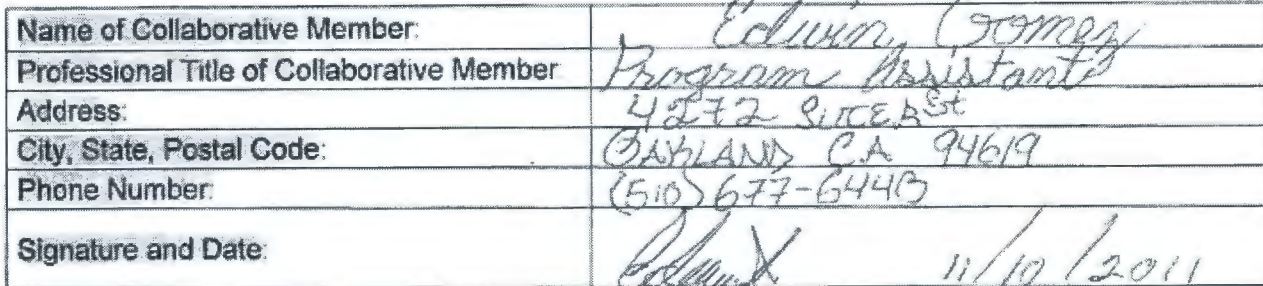 Name of Collaborative Member: Edwin Gomez
Professional Title of Collaborative Member Program Assistant
Address: 4272 SUTER St
City, State, Postal Code: OAKLAND CA 94619
Phone Number: (510) 677-6443
Signature and Date: 11/10/2011